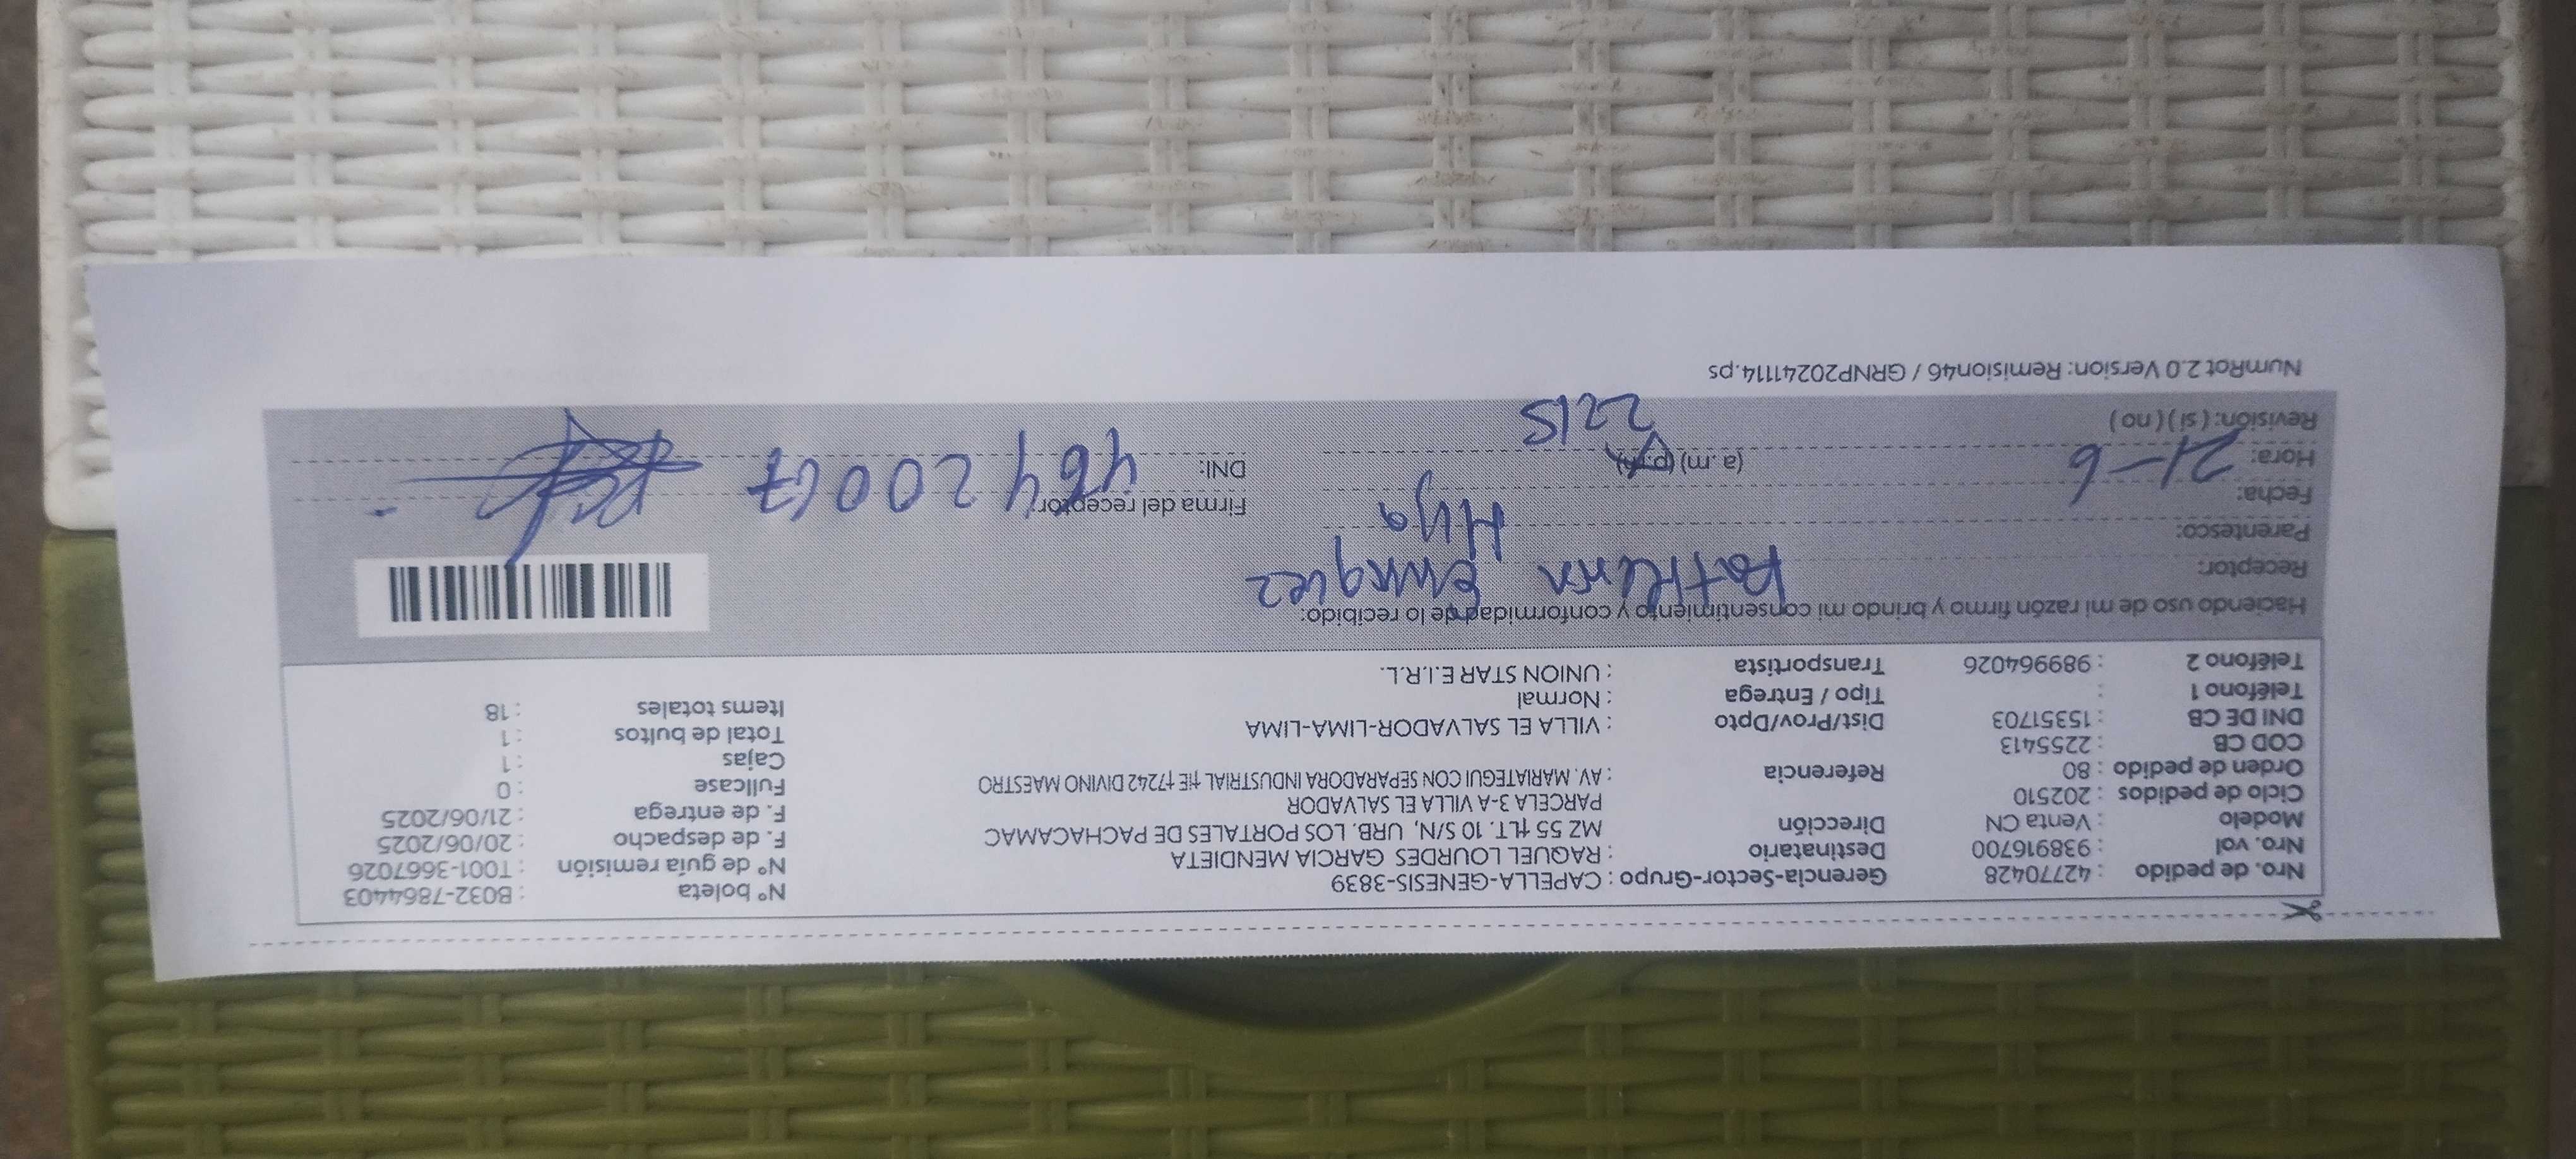 Nro. de pedido : 42770428 Gerencia-Sector-Grupo : CAPELLA-GENESIS-3839 N° boleta : B032-7864403
Nro. vol : 938916700 Destinatario : RAQUEL LOURDES GARCIA MENDIETA N° de guía remisión : T001-3667026
Modelo : Venta CN Dirección MZ 55 LT. 10 S/N, URB. LOS PORTALES DE PACHACAMAC F. de despacho : 20/06/2025
Ciclo de pedidos : 202510 PARCELA 3-A VILLA EL SALVADOR F. de entrega : 21/06/2025
Orden de pedido : 80 Referencia : AV. MARIATEGUI CON SEPARADORA INDUSTRIAL IE 7242 DIVINO MAESTRO Fullcase : 0
COD CB : 2255413 Cajas : 1
DNI DE CB : 15351703 Dist/Prov/Dpto : VILLA EL SALVADOR-LIMA-LIMA Total de bultos : 1
Teléfono 1 : Tipo / Entrega : Normal Items totales : 18
Teléfono 2 : 989964026 Transportista : UNION STAR E.I.R.L.
Haciendo uso de mi razón firmo y brindo mi consentimiento y conformidad de lo recibido:
Receptor:
Parentesco: Hija
Fecha: 21-6 Firma del receptor:
Hora: (a.m) (p.m) 2215 DNI: 46420067
Revisión: ( si ) ( no )
NumRot 2.0 Version: Remision46 / GRNP20241114.ps